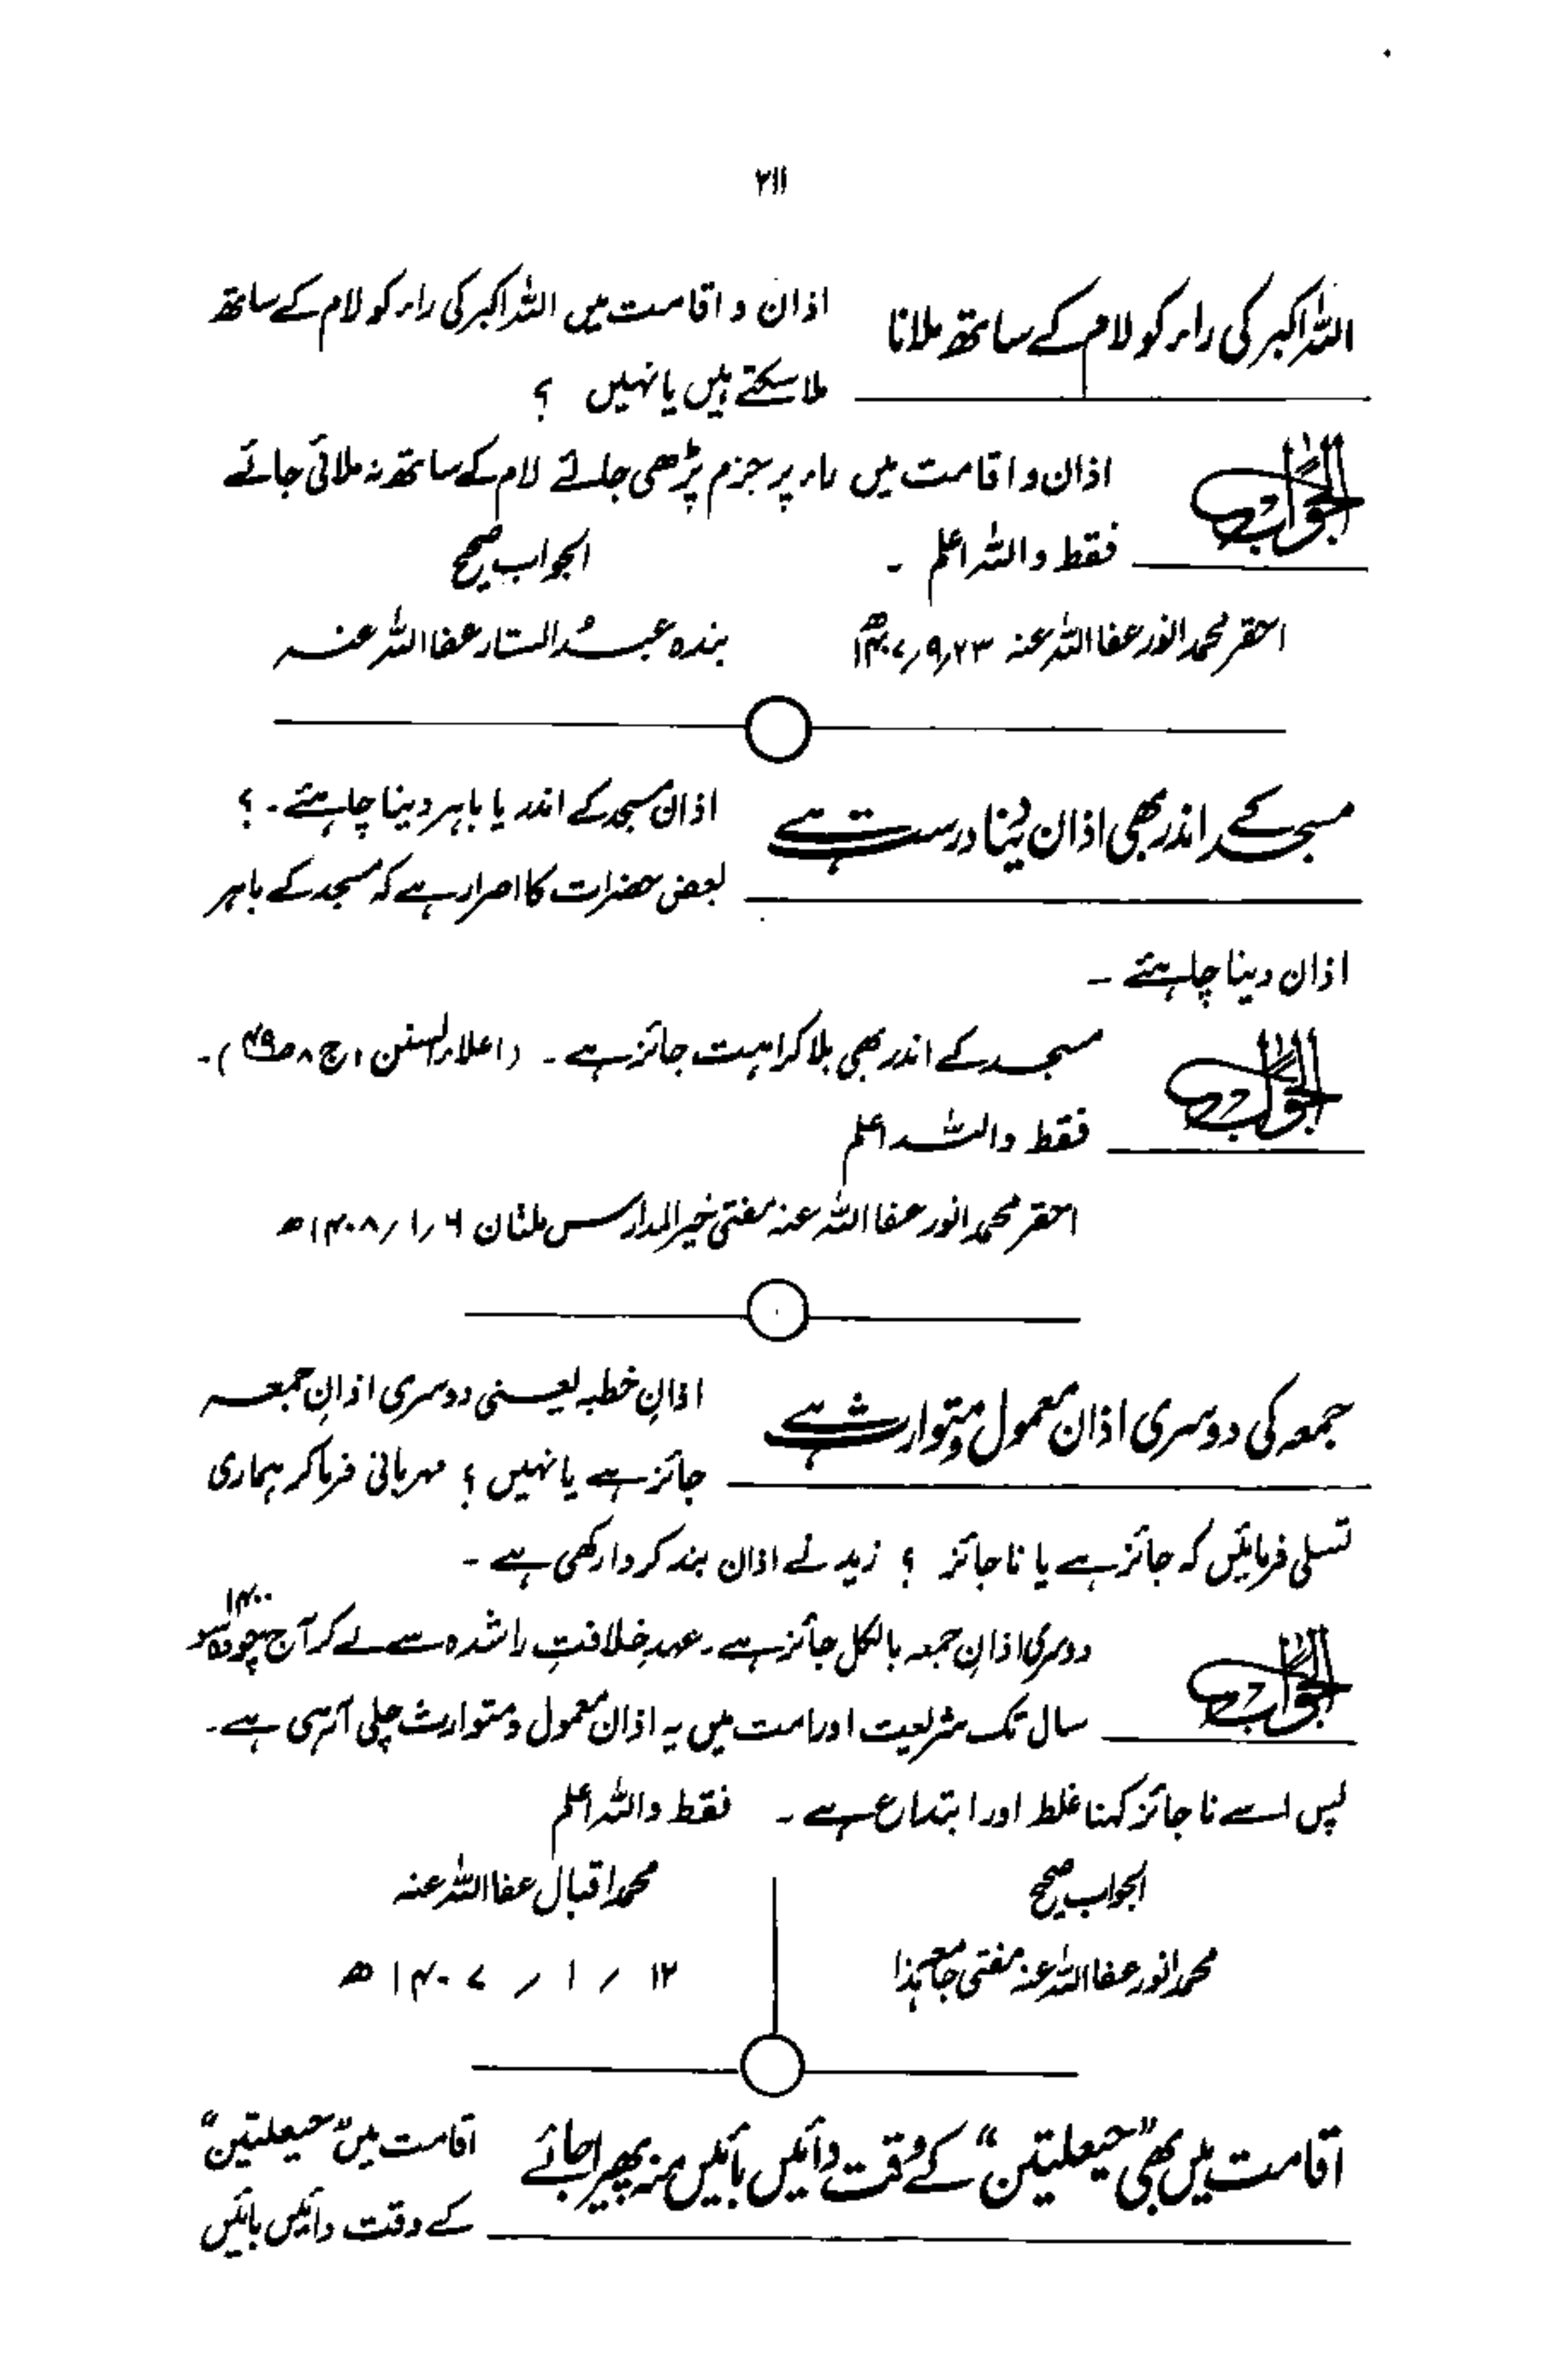 ۲۱۱
اللہ اکبر کی راء کو لام کے ساتھ ملانا
اذان و اقامت میں اللہ اکبر کی راء کو لام کے ساتھ
ملا سکتے ہیں یا نہیں ؟
الجواب
اذان و اقامت میں راء پر جزم پڑھی جائے لام کے ساتھ نہ ملائی جائے
فقط واللہ اعلم ۔
الجواب صحیح
احقر محمد انور عفا اللہ عنہ ۲۳/۹/۱۴۰۷ھ
بندہ عبد الستار عفا اللہ عنہ
مسجد کے اندر بھی اذان دینا درست ہے
اذان مسجد کے اندر یا باہر دینا چاہئے ۔ ؟
بعض حضرات کا اصرار ہے کہ مسجد کے باہر
اذان دینا چاہئے ۔
الجواب
مسجد کے اندر بھی بلا کراہت جائز ہے ۔ (اعلاء السنن ، ج ۸ ص۴۹) ۔
فقط واللہ اعلم
احقر محمد انور عفا اللہ عنہ مفتی خیر المدارس ملتان ۶/۱/۱۴۰۸ھ
جمعہ کی دوسری اذان معمول و متوارث ہے
اذانِ خطبہ یعنی دوسری اذانِ جمعہ
جائز ہے یا نہیں ؟ مہربانی فرما کر ہماری
تسلی فرمائیں کہ جائز ہے یا ناجائز ؟ زید نے اذان بند کروا رکھی ہے ۔
الجواب
دوسری اذانِ جمعہ بالکل جائز ہے ۔ عہدِ خلافتِ راشدہ سے لے کر آج چودہ سو ۱۴۰۰
سال تک شریعت اور امت میں یہ اذان معمول و متوارث چلی آرہی ہے ۔
پس اسے ناجائز کہنا غلط اور ابتداع ہے ۔ فقط واللہ اعلم
الجواب صحیح
محمد انور عفا اللہ عنہ مفتی جامعہ ہذا
محمد اقبال عفا اللہ عنہ
۱۲ / ۱ / ۱۴۰۷ ھ
اقامت میں بھی "حیعلتین" کے وقت دائیں بائیں منہ پھیرا جائے
اقامت میں "حیعلتین"
کے وقت دائیں بائیں